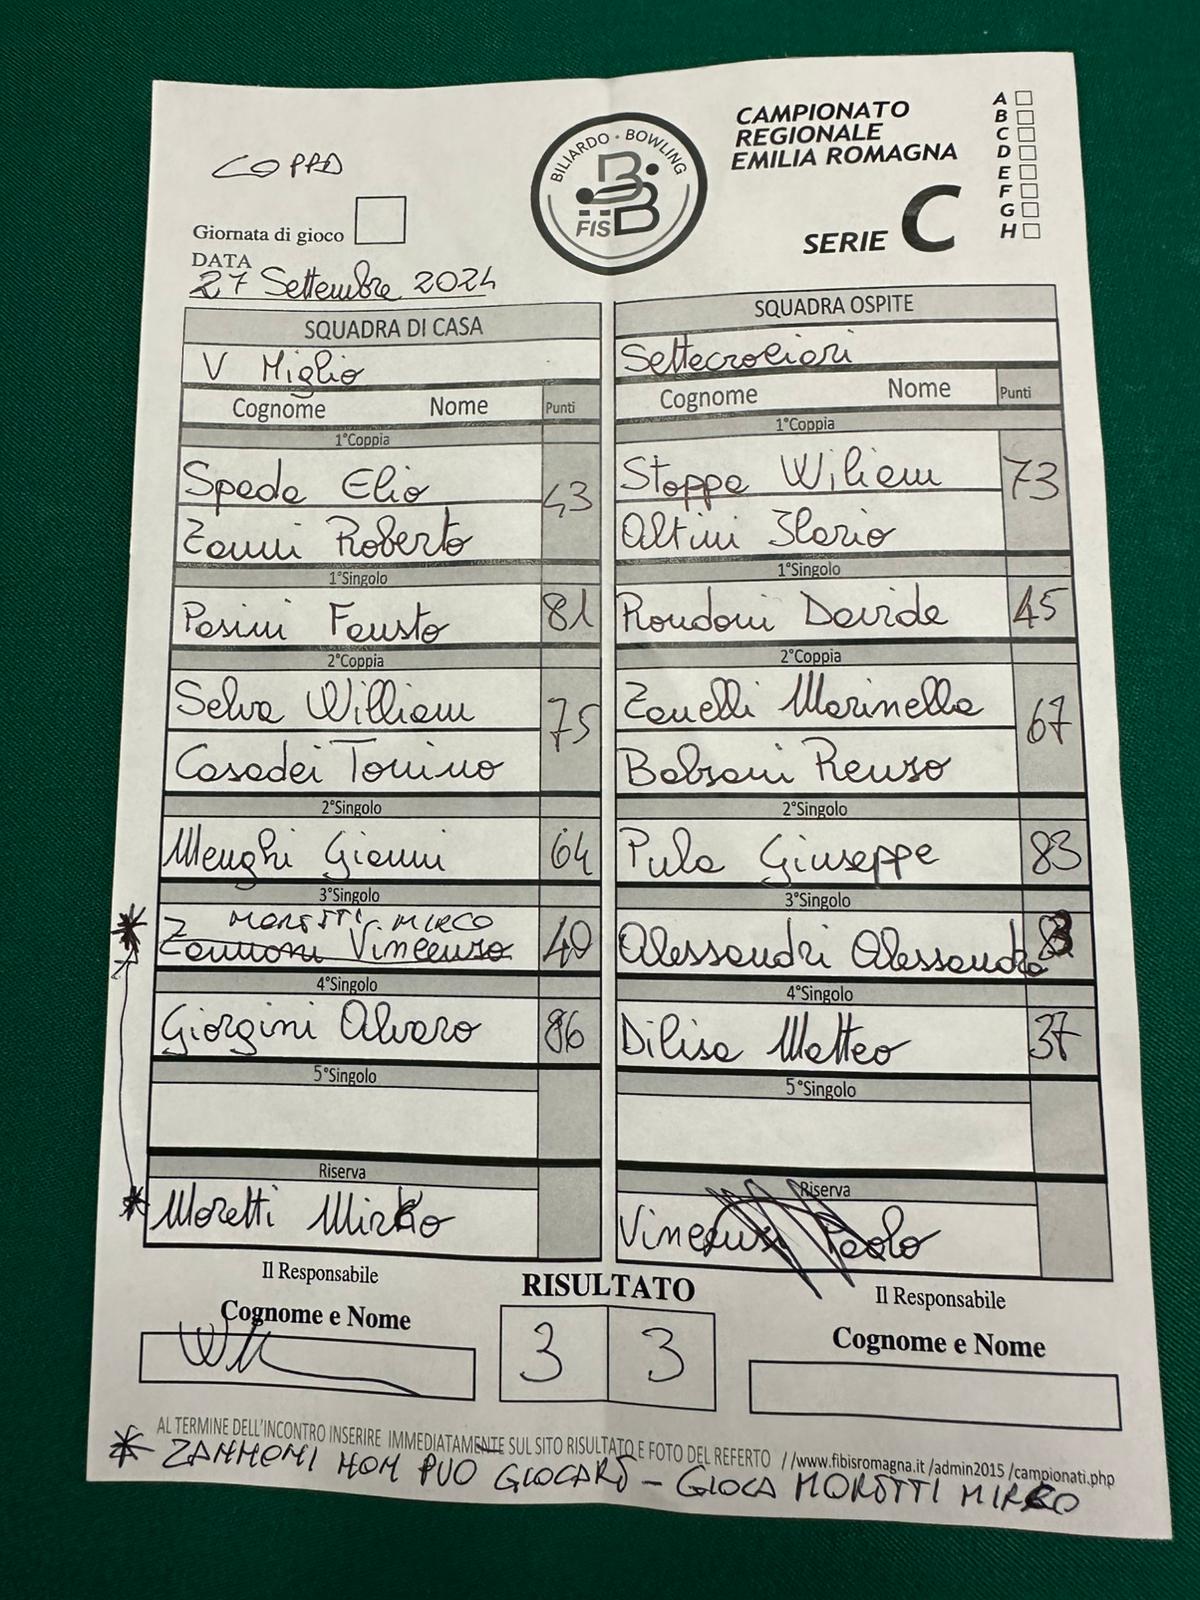 COPPA
Giornata di gioco
DATA
27 Settembre 2024
BILIARDO • BOWLING
FISBB
CAMPIONATO
REGIONALE
EMILIA ROMAGNA
SERIE C
A
B
C
D
E
F
G
H
SQUADRA DI CASA
V Miglio
Cognome Nome Punti
1°Coppia
Spada Elio
43
Zanni Roberto
1°Singolo
Pasini Fausto 81
2°Coppia
Selva William
75
Casadei Tonino
2°Singolo
Menghi Gianni 64
3°Singolo
MORETTI MIRCO
Zannoni Vincenzo 40
4°Singolo
Giorgini Alvaro 86
5°Singolo
Riserva
Moretti Mirko
SQUADRA OSPITE
Settecrociari
Cognome Nome Punti
1°Coppia
Stoppa Wiliam
73
Altini Ilario
1°Singolo
Rondoni Davide 45
2°Coppia
Zanelli Marinella
67
Balzani Renzo
2°Singolo
Pula Giuseppe 83
3°Singolo
Alessandri Alessandro
4°Singolo
Dilisa Matteo 37
5°Singolo
Riserva
Vincenzi Paolo
Il Responsabile
Cognome e Nome
RISULTATO
3 3
Il Responsabile
Cognome e Nome
AL TERMINE DELL'INCONTRO INSERIRE IMMEDIATAMENTE SUL SITO RISULTATO E FOTO DEL REFERTO //www.fibisromagna.it /admin2015 /campionati.php
* ZANNONI NON PUO GIOCARE - GIOCA MORETTI MIRCO